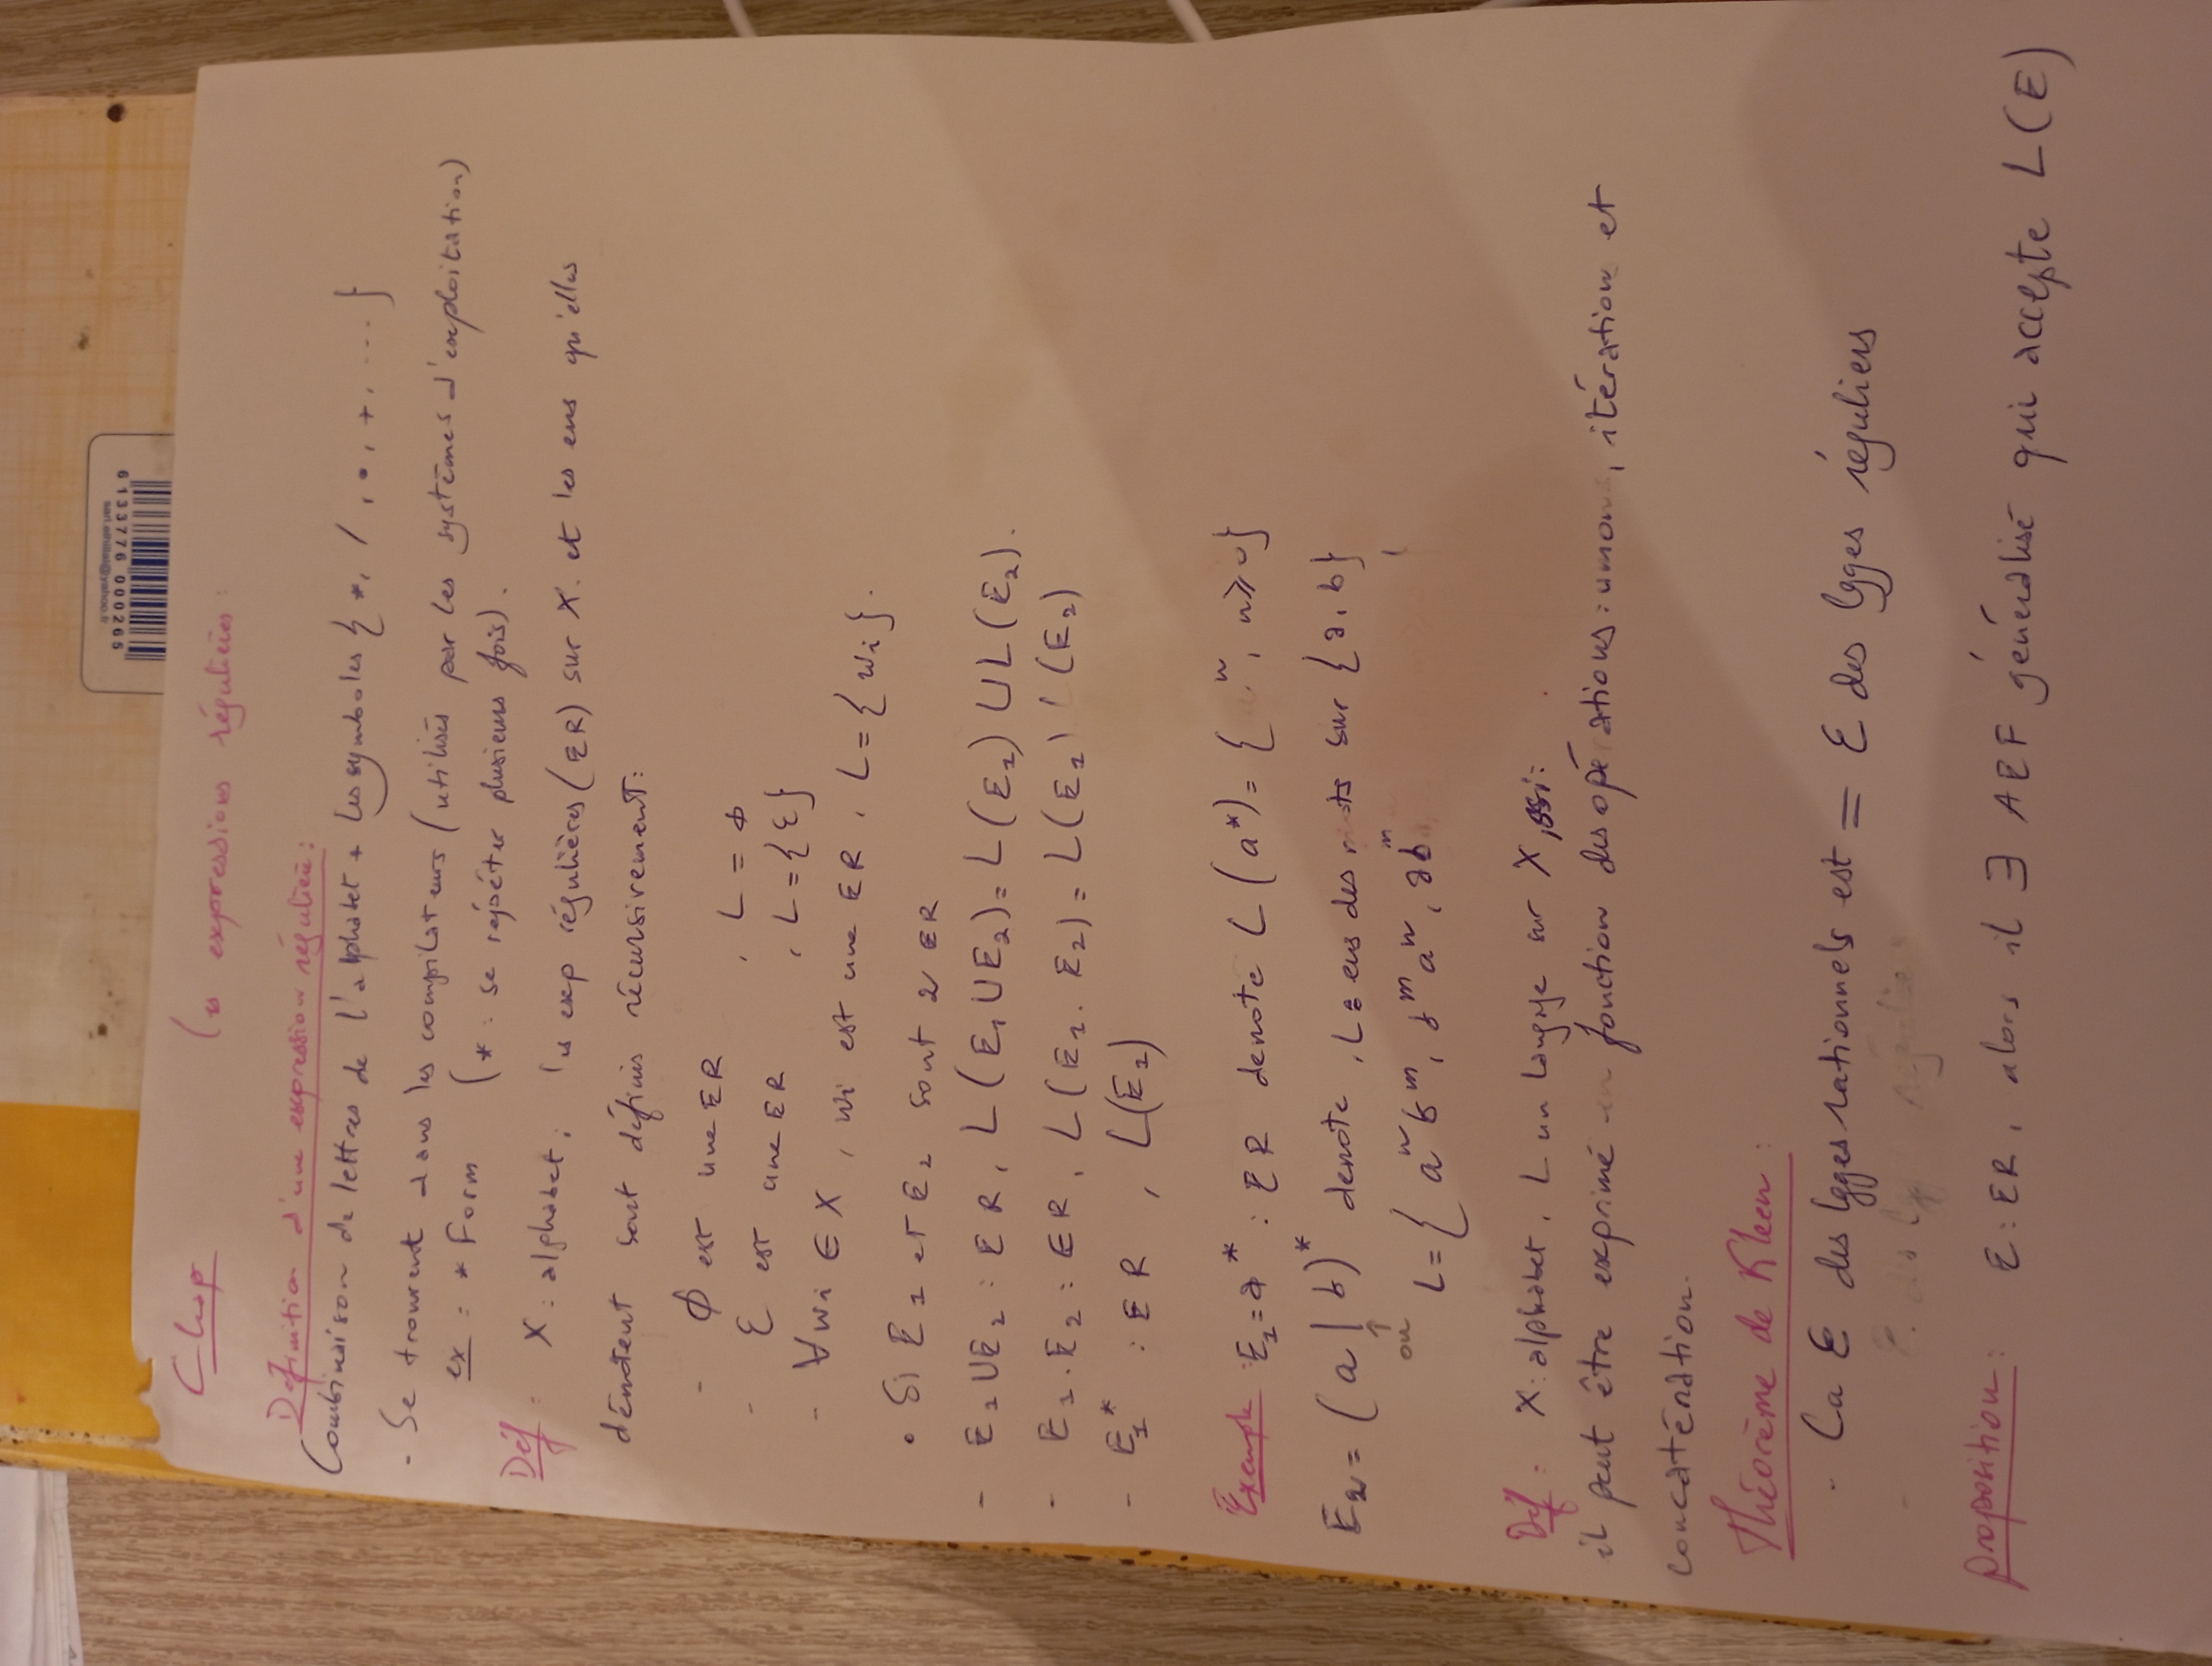 sari.elhillal@yahoo.fr
6 133776 000265
Chap Les expressions régulières :
Définition d'une expression régulière :
Combinaison de lettres de l'alphabet + les symboles { *, / , • , + , ... }
- Se trouvent dans les compilateurs (utilisés par les systèmes d'exploitation)
ex : * Form (* : se répéter plusieurs fois).
Déf : X : alphabet, les exp régulières (ER) sur X. et les ens qu'elles
dénotent sont définis récursivement :
- ϕ est une ER , L = ϕ
- Ɛ est une ER , L = {Ɛ}
- ∀wi ∈ X , wi est une ER , L = { wi }.
• Si E1 et E2 sont 2 ER
- E1 ∪ E2 : ER, L(E1 ∪ E2) = L(E1) ∪ L(E2).
- E1 . E2 : ER, L(E1 . E2) = L(E1) (E2)
- E1* : ER , L(E1)
Exemple : E1 = a* : ER denote L(a*) = { a^n, n ≥ 0 }
E2 = (a | b)* denote , L = ens des mots sur {a, b}
ou
L = { a^n b^m, b^m a^n, ab^m
Déf : X : alphabet, L un langage sur X, ssi :
il peut être exprimé en fonction des opérations : union, itération et
concaténation.
Théorème de Kleen :
- La Ɛ des lgges rationnels est = Ɛ des lgges réguliers
- E. des lgg régulie
Proposition : E : ER, alors il ∃ AEF généralisé qui accepte L(E)